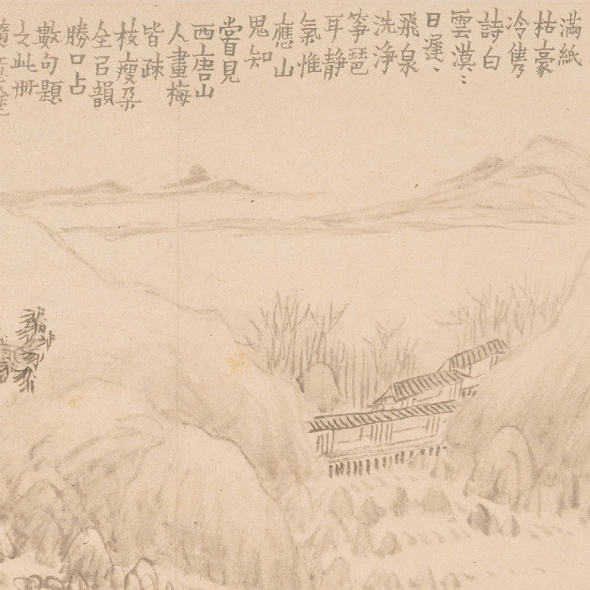 滿紙
枯豪
冷雋
詩白
雲漠〻
日遲〻
飛泉
洗淨
箏琶
耳靜
氣惟
應山
思知
嘗見
西唐山
人畫梅
皆疎
枝瘦朶
全㠯韻
勝口占
數句題
之此册